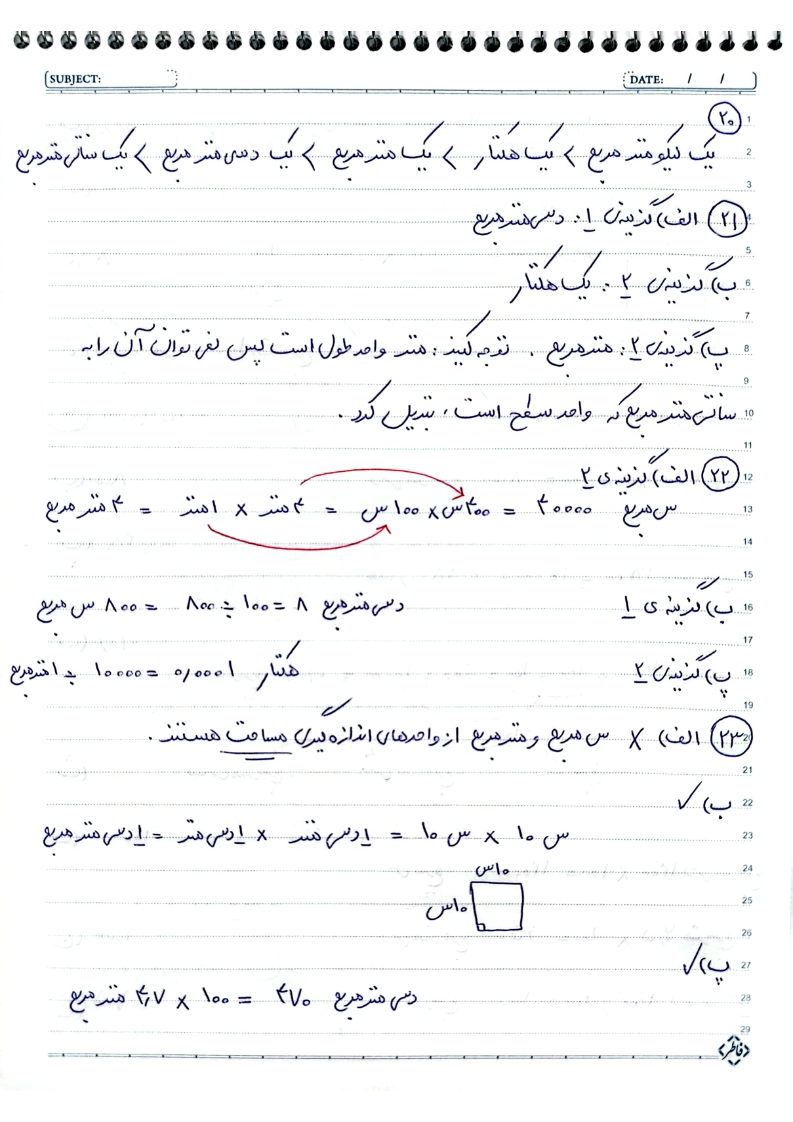 SUBJECT: DATE: / /
۲۰
یک کیلومتر مربع > یک هکتار > یک متر مربع > یک دسی متر مربع > یک سانتی متر مربع
۲۱ الف) گزینه‌ی ۱: دسی متر مربع
ب) گزینه‌ی ۲: یک هکتار
پ) گزینه‌ی ۲: متر مربع. توجه کنید: متر واحد طول است پس نمی توان آن را به
سانتی متر مربع که واحد سطح است، تبدیل کرد.
۲۲ الف) گزینه ی ۲
۴ متر مربع = ۱ متر × ۴ متر = ۱۰۰ س × ۴۰۰ س = ۴۰۰۰۰ س مربع
ب) گزینه ی ۱
۸۰۰ س مربع = ۸۰۰ ÷ ۱۰۰ = ۸ دسی متر مربع
پ) گزینه‌ی ۲
۱ متر مربع ÷ ۱۰۰۰۰ = ۰/۰۰۰۱ هکتار
۲۳ الف) × س مربع و متر مربع از واحدهای اندازه گیری مساحت هستند.
ب) ✓
۱ دسی متر مربع = ۱ دسی متر × ۱ دسی متر = ۱۰ س × ۱۰ س
۱۰ س
۱۰ س
پ) ✓
۴/۷ متر مربع × ۱۰۰ = ۴۷۰ دسی متر مربع
فاطر
1
2
3
4
5
6
7
8
9
10
11
12
13
14
15
16
17
18
19
20
21
22
23
24
25
26
27
28
29